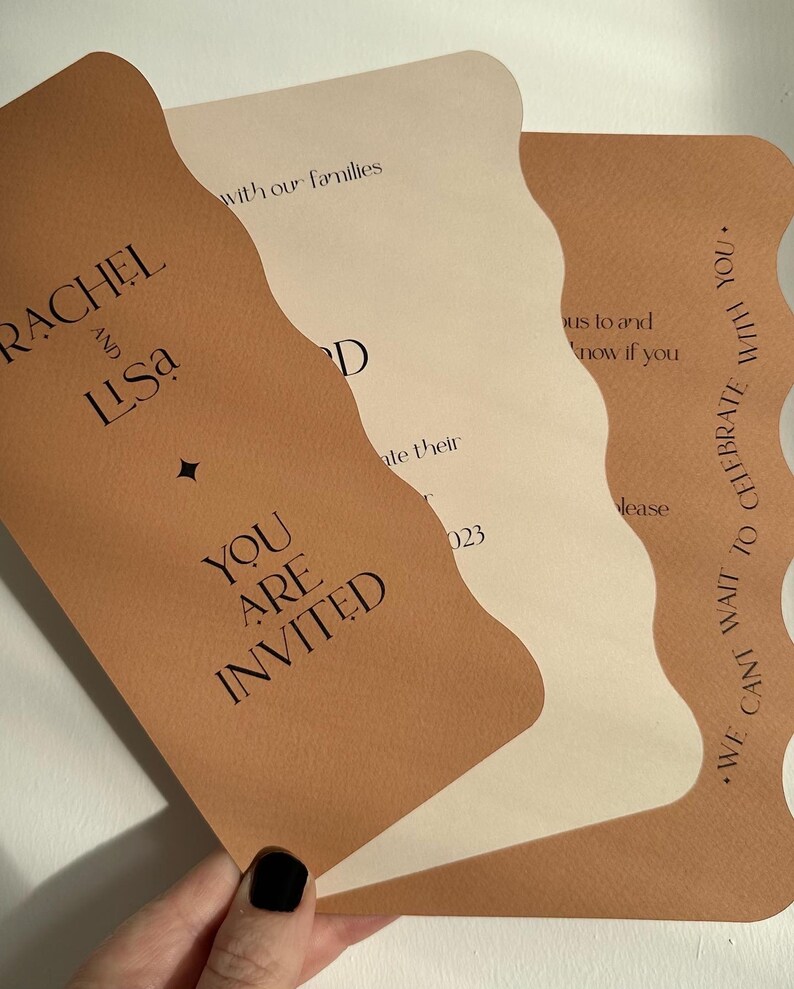 RACHEL
AND
LISa
YOU
ARE
INVITED
with our families
ate their
023
to and
know if you
please
WE CANT WAIT TO CELEBRATE WITH YOU